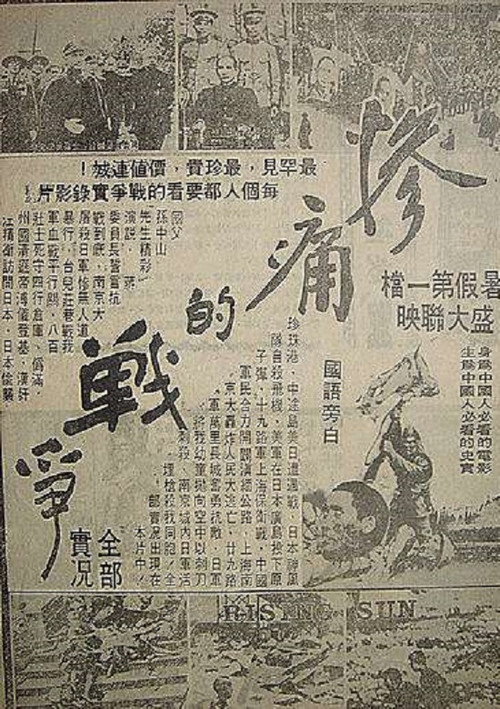 慘痛的戰爭
最罕見，最珍貴，價值連城！
每個人都要看的戰爭實錄影片
暑假第一檔
盛大聯映
身為中國人必看的電影
生為中國人必看的史實
國語旁白
國父
孫中山
先生精彩
演說．蔣
委員長誓言抗
戰到底，南京大
屠殺日軍慘無人道
暴行，台兒莊巷戰我
軍血戰平行關，八百
壯士死守四行倉庫、偽滿
州國溥儀登基，漢奸
汪精衛訪問日本，日本偷襲
珍珠港、中途島美日遭遇戰，日本神風
隊自殺飛機，美軍在日本廣島投下原
子彈，十九路軍上海保衛戰，中國
軍民合力開闢滇緬公路，上海南
京大轟炸人民大逃亡，廿九路
軍萬里長城奮勇抗敵，日軍
將我幼童拋向空中以刺刀
刺殺、南京城內日軍活
埋槍殺我同胞！全
部實況出現在
本片中！
全部
實況
RISING SUN